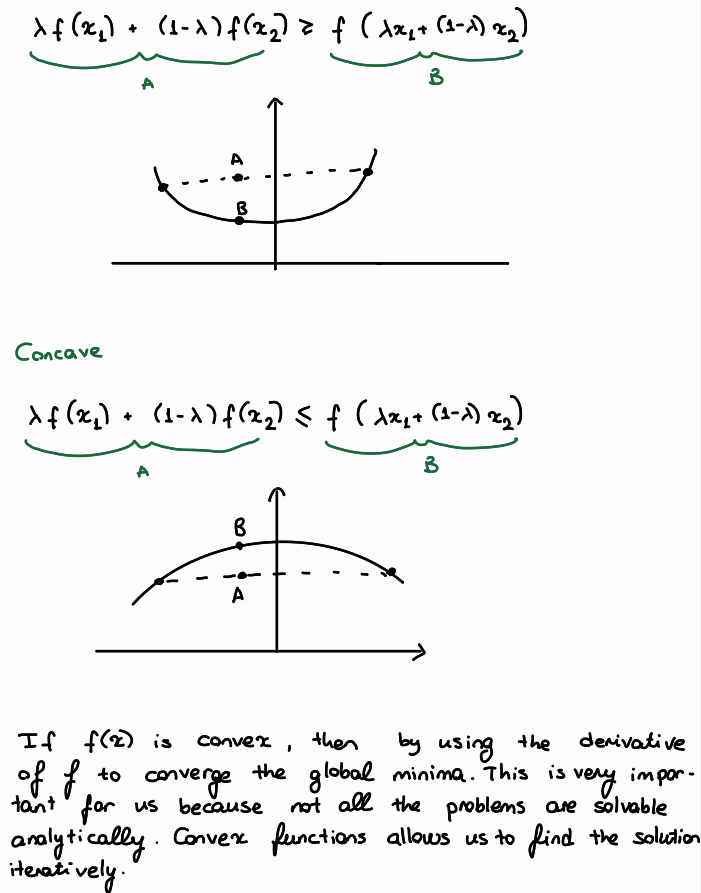 λf(x₁) + (1-λ)f(x₂) ≥ f(λx₁+(1-λ)x₂)
A B
A
B
Concave
λf(x₁) + (1-λ)f(x₂) ≤ f(λx₁+(1-λ)x₂)
A B
B
A
If f(x) is convex, then by using the derivative
of f to converge the global minima. This is very impor-
tant for us because not all the problems are solvable
analytically. Convex functions allows us to find the solution
iteratively.